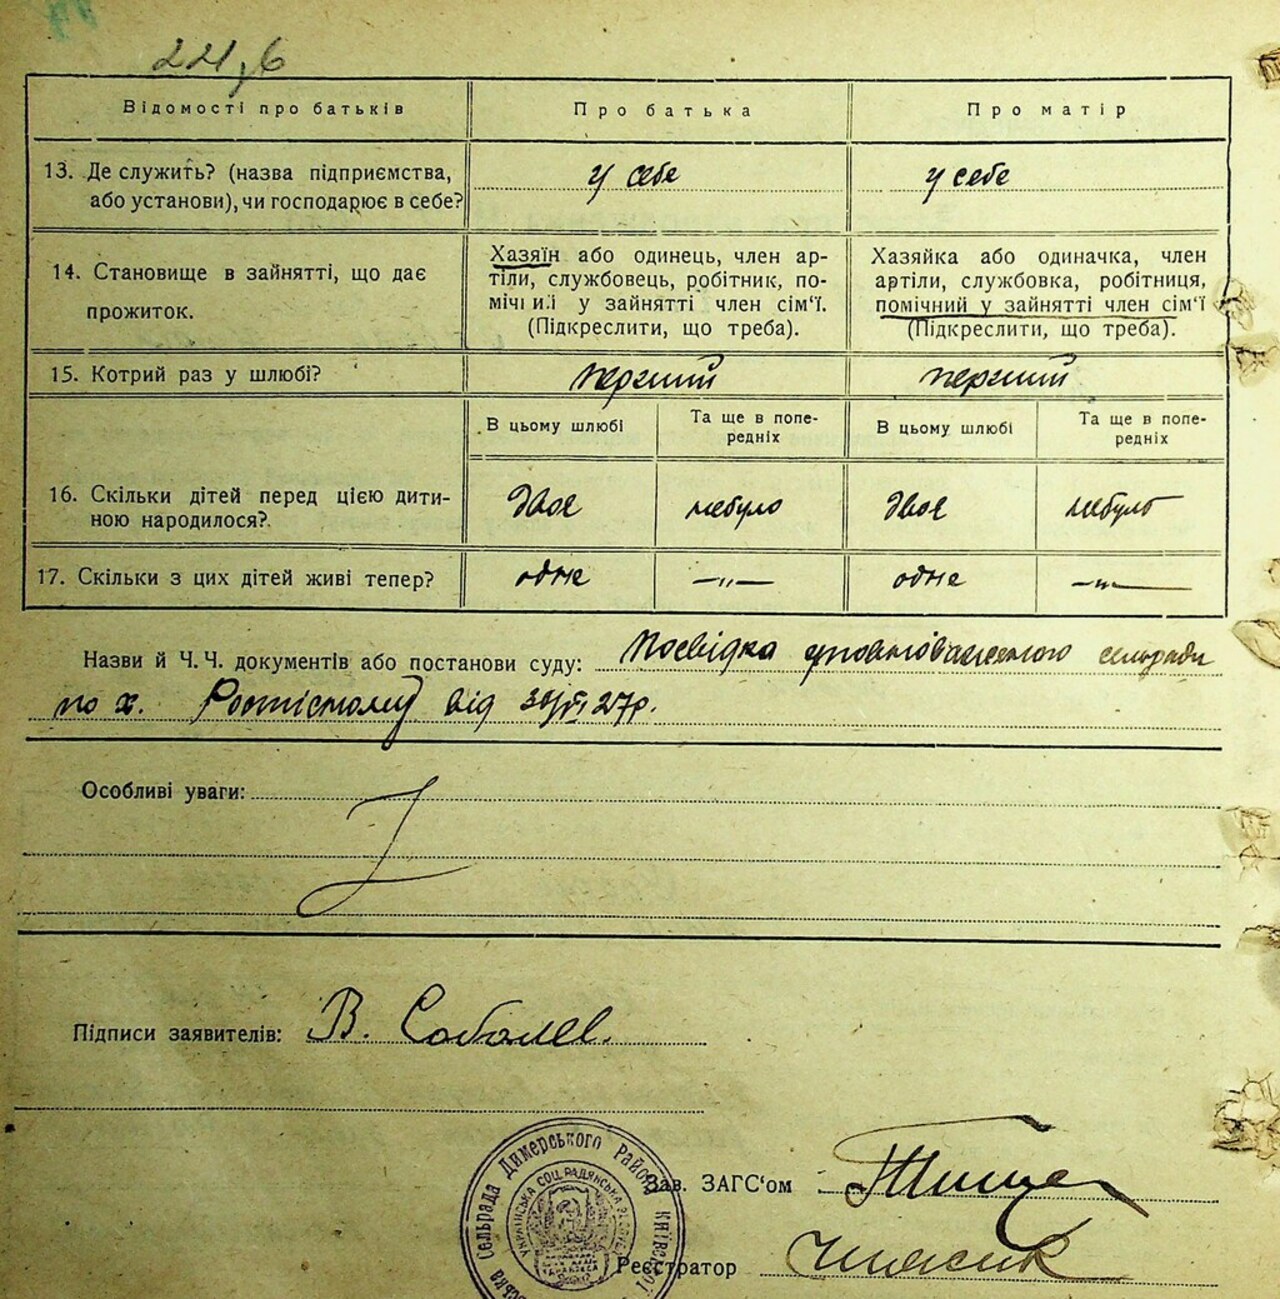 Відомості про батьків	Про батька	Про матір
13. Де служить? (назва підприємства,	у себе	у себе
або установи), чи господарює в себе?
14. Становище в зайнятті, що дає прожиток.
Хазяїн або одинець, член ар-
тіли, службовець, робітник, по-
мічний у зайнятті член сім'ї.
(Підкреслити, що треба).
Хазяйка або одиначка, член
артіли, службовка, робітниця,
помічний у зайнятті член сім'ї
(Підкреслити, що треба).
15. Котрий раз у шлюбі?	перший	перший
В цьому шлюбі	Та ще в попе-	В цьому шлюбі	Та ще в попе-
редніх	редніх
16. Скільки дітей перед цією дити-
ною народилося?	двоє	небуло	двоє	небуло
17. Скільки з цих дітей живі тепер?	одне	—"—	одне	—"—
Назви й Ч.Ч. документів або постанови суду: Посвідка уповноваженого сельради
по х. від 27р.
Особливі уваги:
Підписи заявителів: В. Соболев.
Сельрада Димерського Району Київської
УКРАЇНСЬКА СОЦ. РАДЯНСЬКА
Зав. ЗАГС'ом
Реєстратор